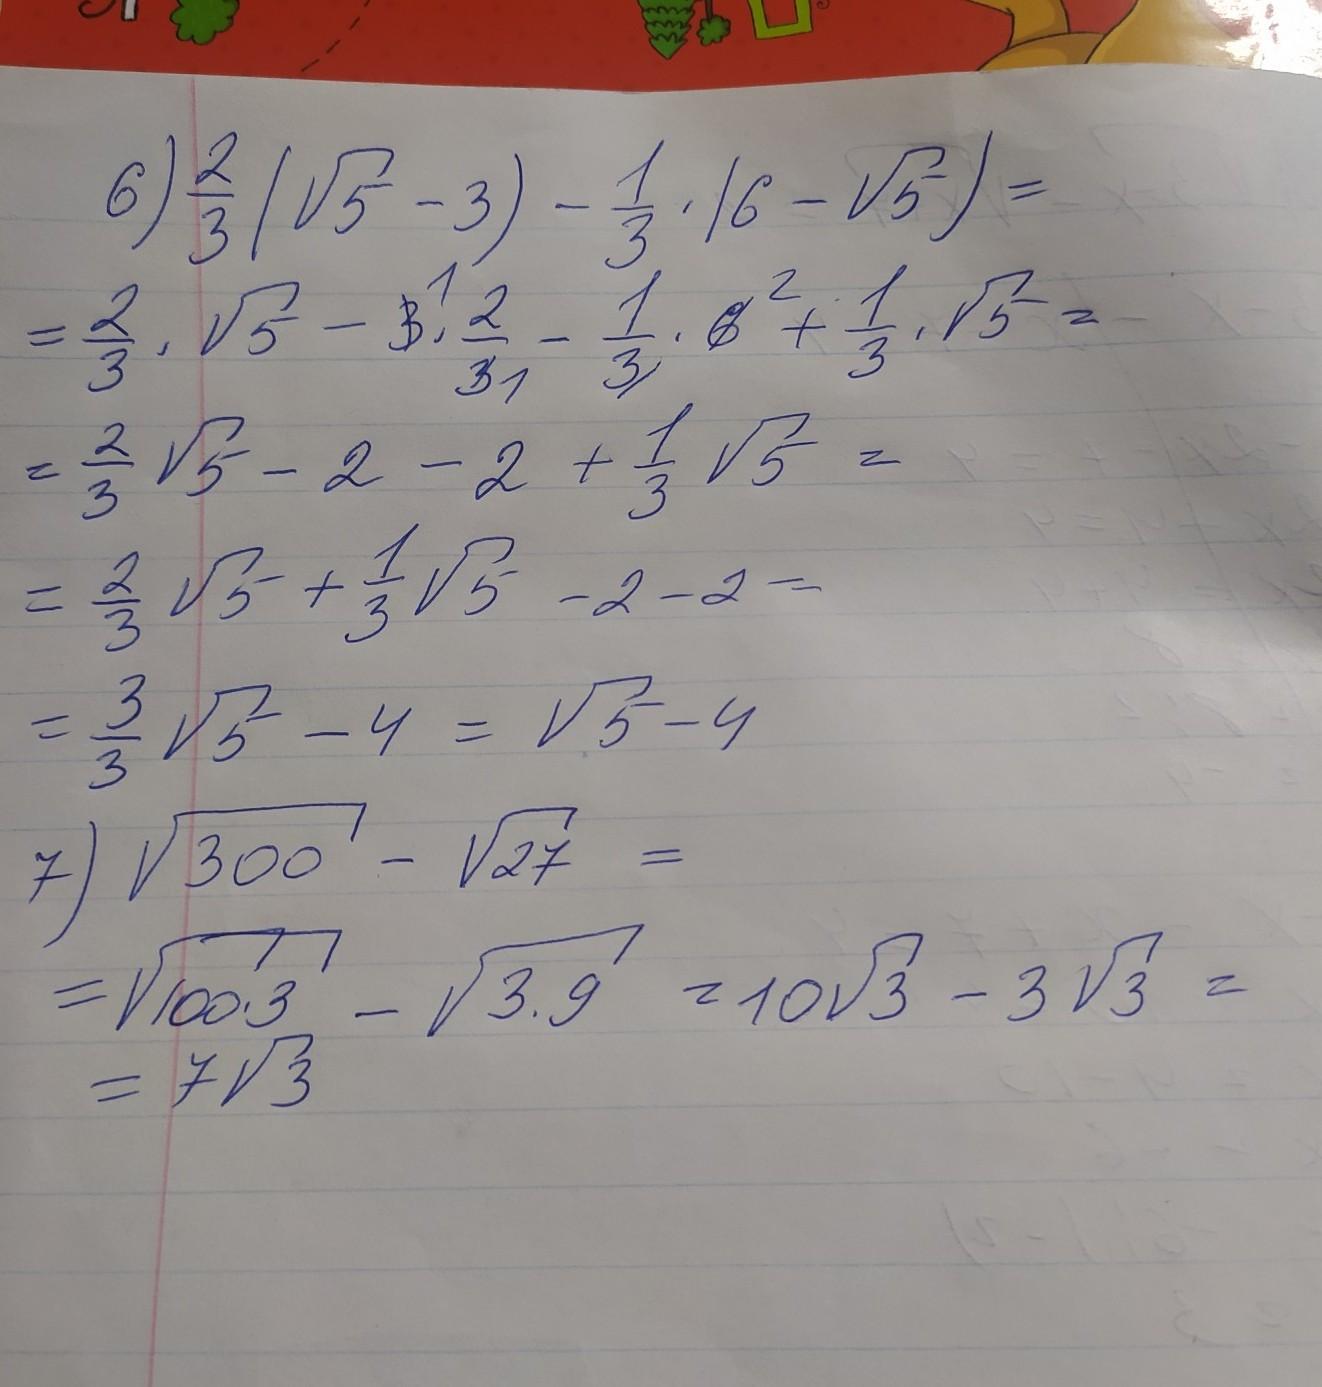 6) 2/3 (√5 - 3) - 1/3 · (6 - √5) =
= 2/3 · √5 - 3¹ · 2/3₁ - 1/3₁ · 6² + 1/3 · √5 =
= 2/3 √5 - 2 - 2 + 1/3 √5 =
= 2/3 √5 + 1/3 √5 - 2 - 2 =
= 3/3 √5 - 4 = √5 - 4
7) √300 - √27 =
= √100·3 - √3·9 = 10√3 - 3√3 =
= 7√3